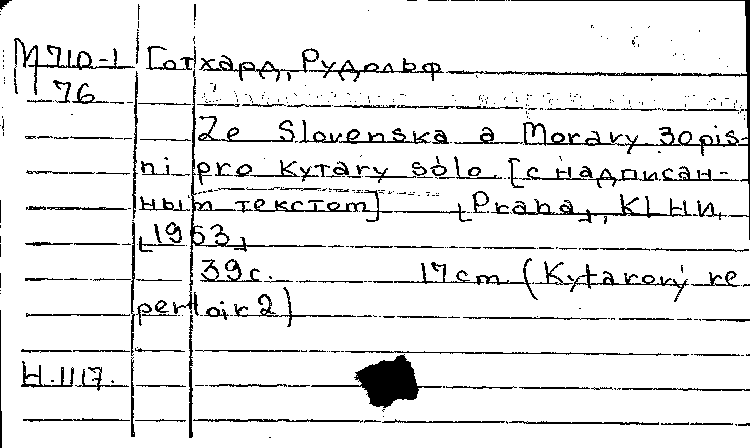 М710-1 Готхард, Рудольф
76
Ze Slovenska a Moravy 30 pis-
ni pro kytary sólo [с надписан-
ным текстом] [Praha], KLHИ,
[1953]
39с. 17cm (Kytarový re
pertoir 2)
Н.1117.